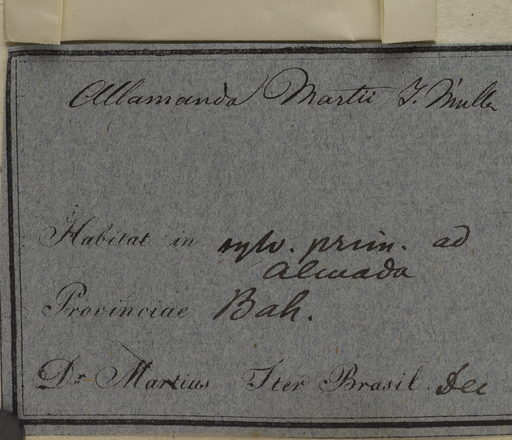 Allamanda Martii J. Müller
Habitat in sylv. prim. ad
Almada
Provinciae Bah.
Dr. Martius Iter Brasil. Dec